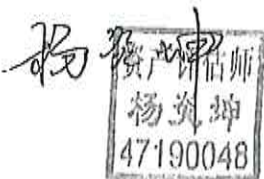 杨奕坤
资产评估师
杨奕坤
47190048